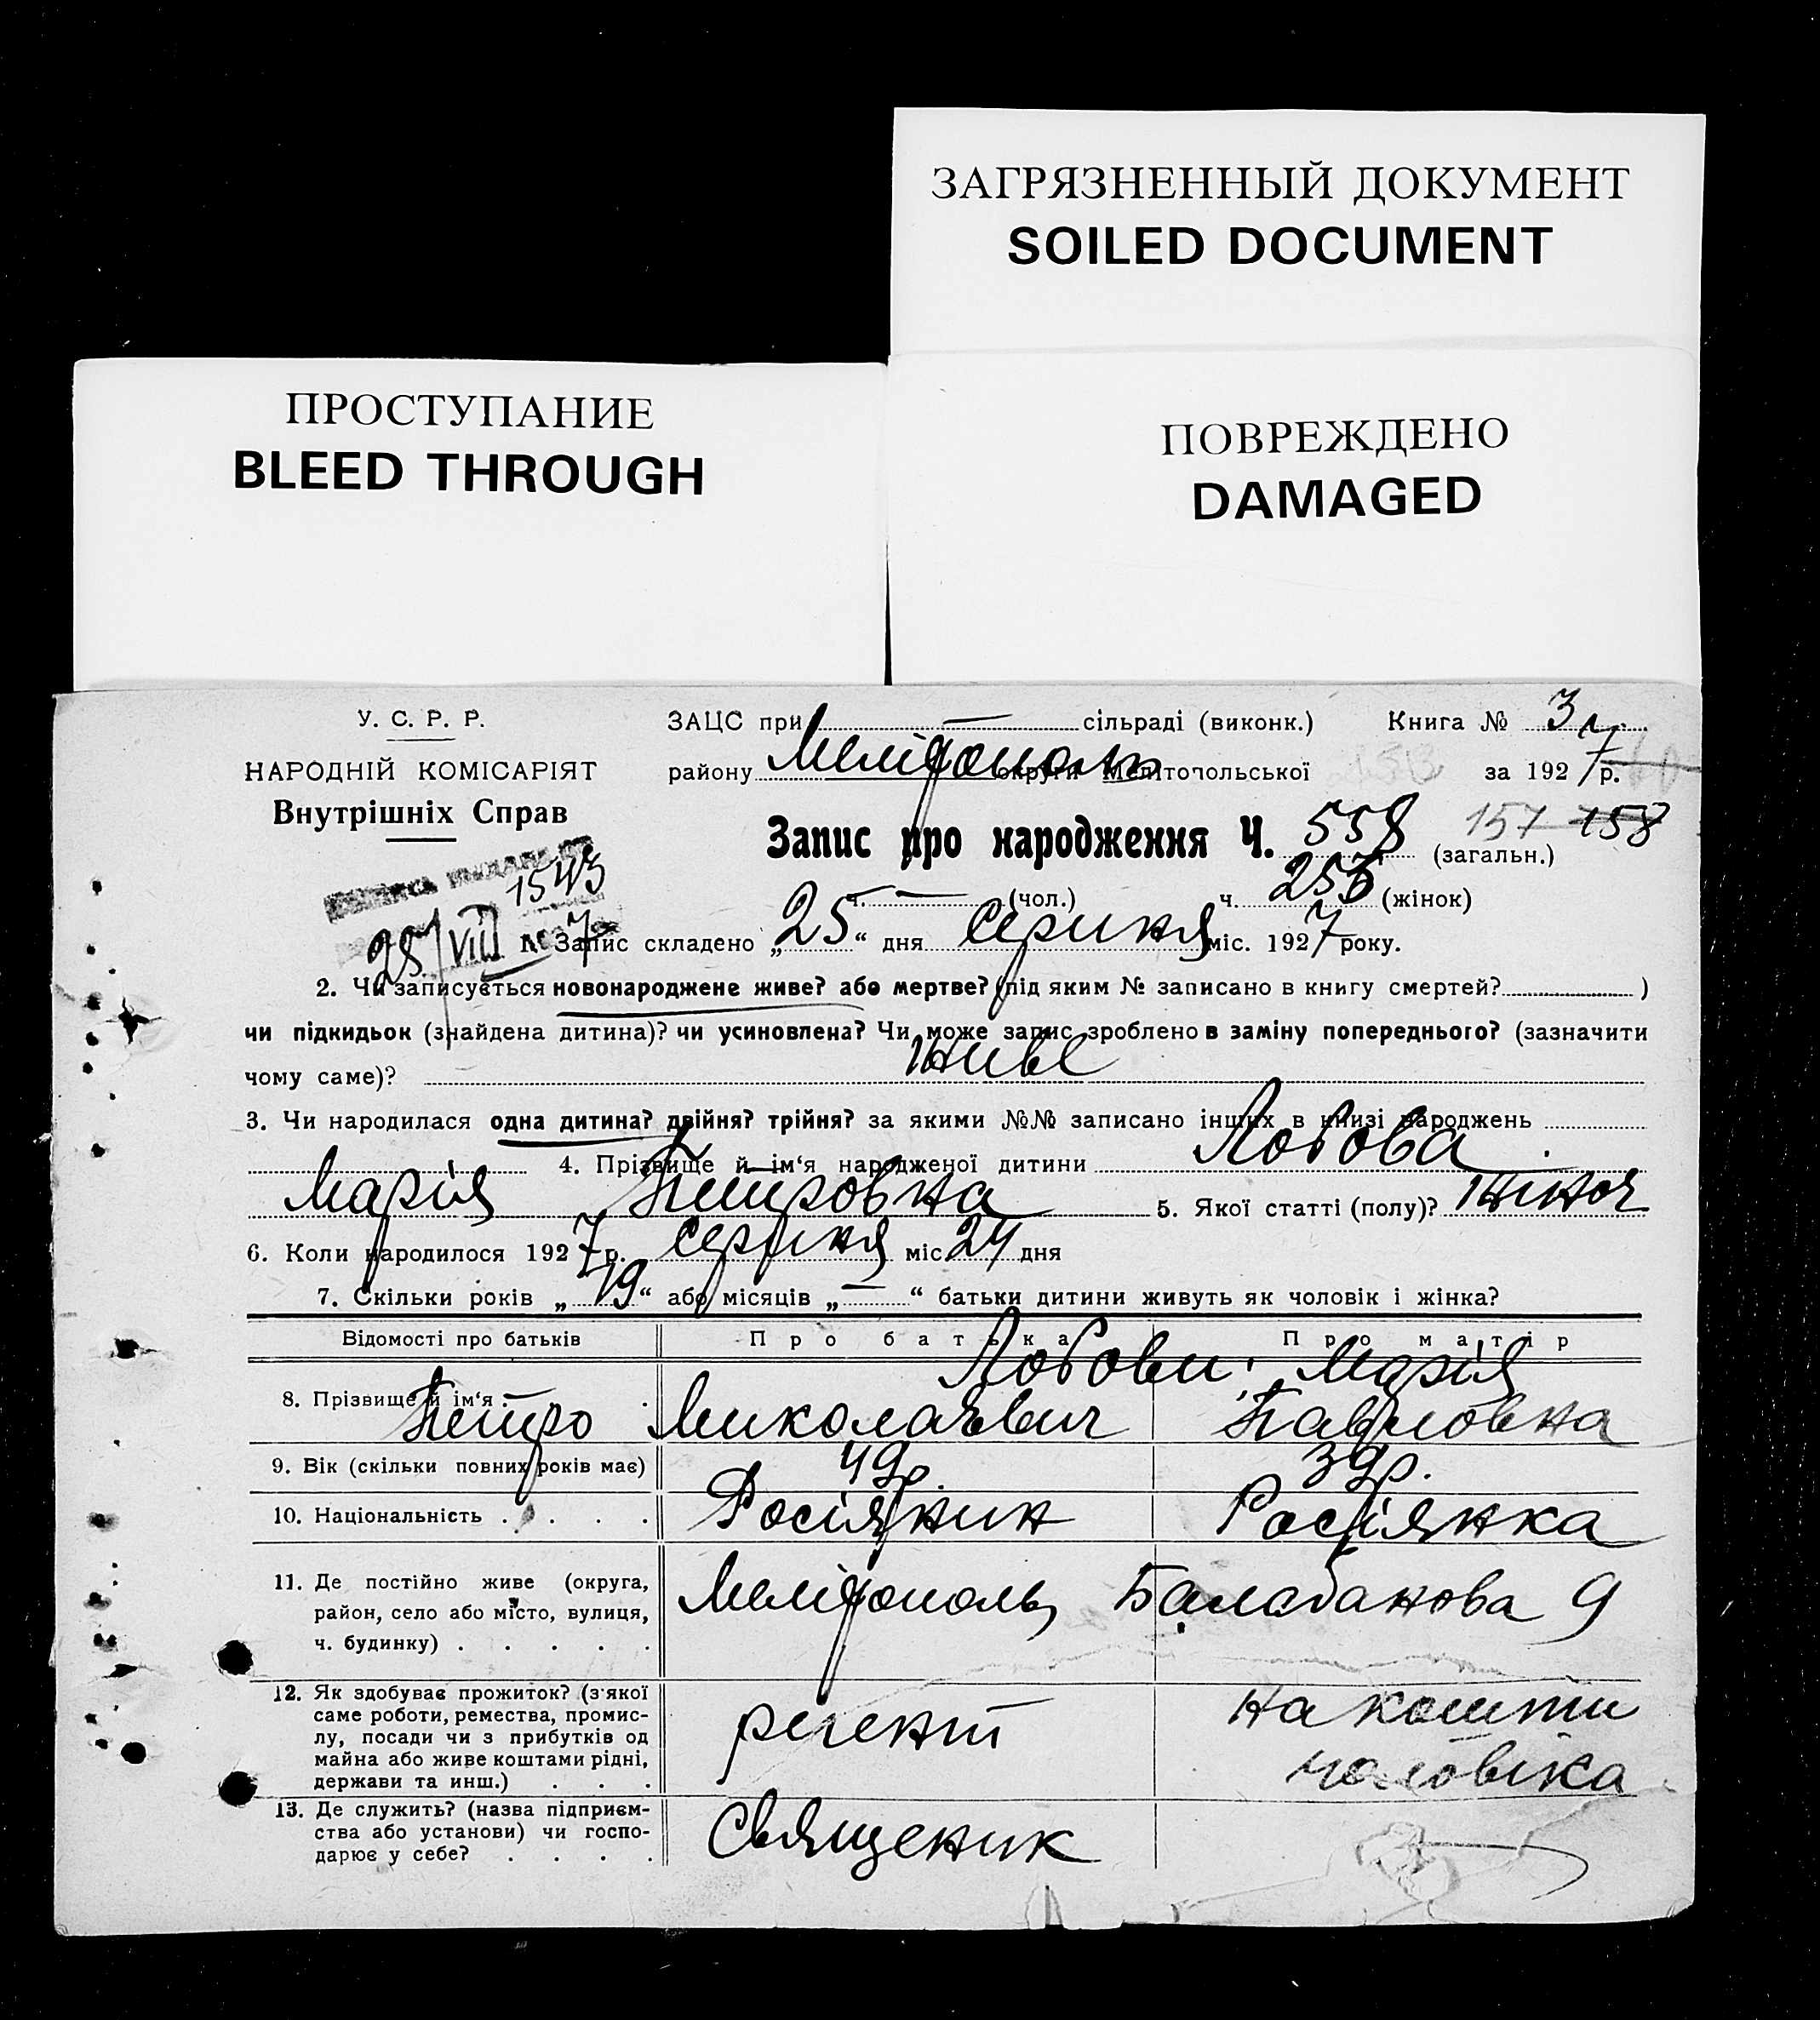 ЗАГРЯЗНЕННЫЙ ДОКУМЕНТ
SOILED DOCUMENT
ПРОСТУПАНИЕ
BLEED THROUGH
ПОВРЕЖДЕНО
DAMAGED
У. С. Р. Р.
НАРОДНІЙ КОМІСАРІЯТ
Внутрішніх Справ
ЗАЦС при — сільраді (виконк.) Книга № 3
району Мелітополь округи Мелітопольської за 1927 р.
Запис про народження Ч. 558 (загальн.) 157 158
ч. — (чол.) ч. 256 (жінок)
1543
25/VIII 7
Запис складено „25“ дня Серпня міс. 1927 року.
2. Чи записується новонароджене живе? або мертве? (під яким № записано в книгу смертей? )
чи підкидьок (знайдена дитина)? чи усиновлена? Чи може запис зроблено в заміну попереднього? (зазначити
чому саме)? живе
3. Чи народилася одна дитина? двійня? трійня? за якими №№ записано інших в книзі народжень
4. Прізвище й ім‘я народженої дитини Лобова
Марія Петровна 5. Якої статті (полу)? жіноч
6. Коли народилося 1927 р. серпня міс. 24 дня
7. Скільки років „19“ або місяців „—“ батьки дитини живуть як чоловік і жінка?
Відомості про батьків Про батька Про матір
8. Прізвище й ім‘я . . Лобови: Марія
Петро Миколаєвич Павловна
9. Вік (скільки повних років має) 49 р. 39 р.
10. Національність . . . . . Росіянин Росіянка
11. Де постійно живе (округа,
район, село або місто, вулиця,
ч. будинку) . . . . .
Мелітополь, Балабанова 9
12. Як здобуває прожиток? (з якої
саме роботи, ремества, промис-
лу, посади чи з прибутків од
майна або живе коштами рідні,
держави та инш.) . . .
регент
на кошти
чоловіка
13. Де служить? (назва підприєм-
ства або установи) чи госпо-
дарює у себе? . . . .
Священик